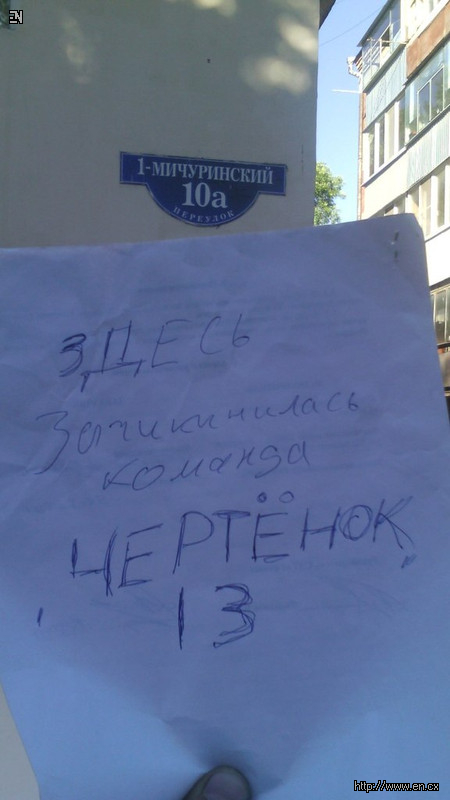 EN
1-МИЧУРИНСКИЙ
10а
ПЕРЕУЛОК
ЗДЕСЬ
Зачикинилась
команда
ЧЕРТЁНОК
13
http://www.en.cx